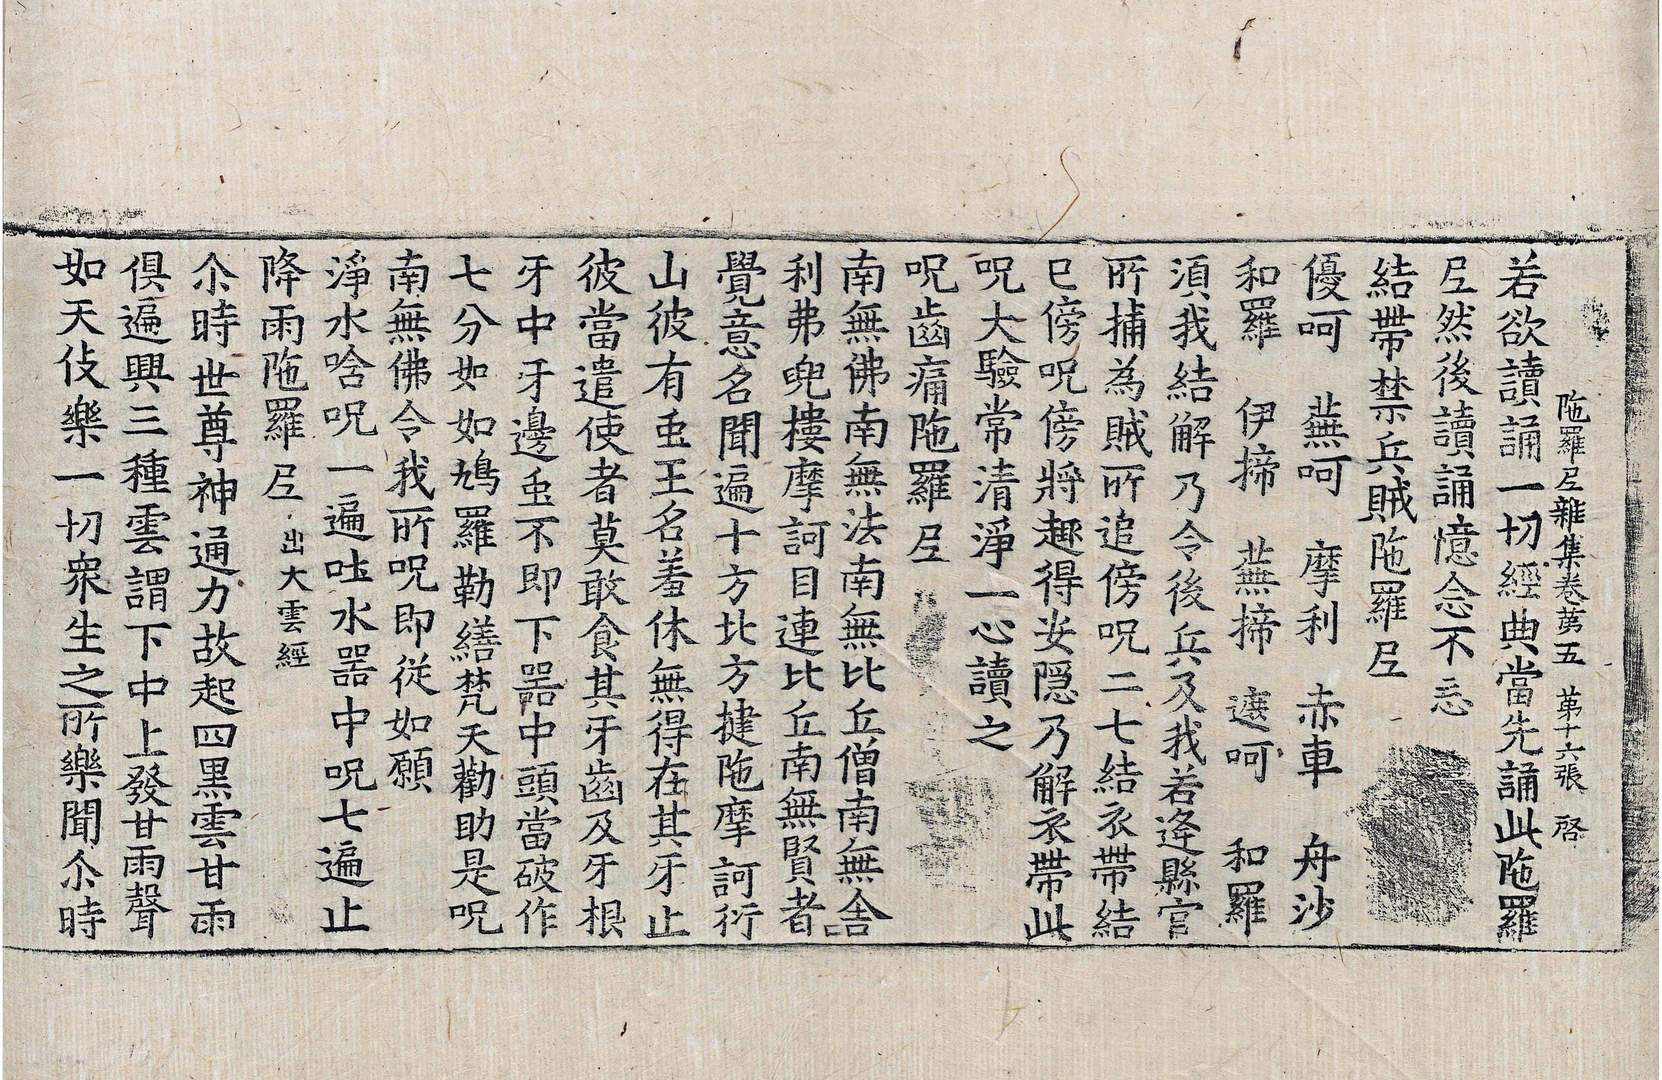 陁羅𡰱雜集卷苐五 苐十六張 啓
若欲讀誦一切經典當先誦此陁羅
𡰱然後讀誦憶念不忘
結帶禁兵賊陁羅𡰱
優呵 蕪呵 摩利 赤車 舟沙
和羅 伊揥 蕪揥 遮呵 和羅
湏我結解乃令後兵及我若逢縣官
所捕為賊所追傍呪二七結衣帶結
巳傍呪傍將趣得安隱乃解衣帶此
呪大驗常清淨一心讀之
呪齒痛陁羅𡰱
南無佛南無法南無比丘僧南無舍
利弗兜樓摩訶目連比丘南無賢者
覺意名聞遍十方北方揵陁摩訶衍
山彼有䖝王名羞休無得在其牙止
彼當遣使者莫敢食其牙齒及牙根
牙中牙邊䖝不即下器中頭當破作
七分如如鳩羅勒繕梵天勸助是呪
南無佛令我所呪即從如願
淨水唅呪一遍吐水器中呪七遍止
降雨陁羅𡰱 出大雲經
尒時世尊神通力故起四黑雲甘雨
俱遍興三種雲謂下中上發甘雨聲
如天伎樂一切衆生之所樂聞尒時